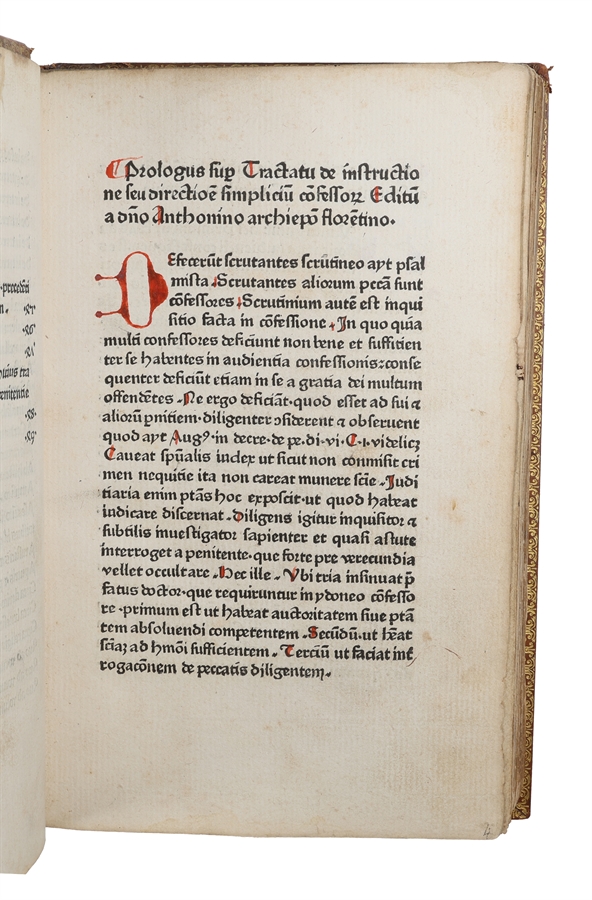 precedēti
n. .87.
.86.
.81
hidius tra
enitentie
.88.
.89.
Prologus suꝑ Tractatu de instructio
ne seu directiōe simpliciū cōfessorꝝ Editū
a dn̄o Anthonino archiep̄o florētino.
Defecerūt scrutantes scrutineo ayt psal
mista . Scrutantes aliorum pecc̄a sunt
cōfessores . Scrutinium autē est inqui
sitio facta in cōfessione . In quo quia
multi confessores deficiunt non bene et suffitien
ter se habentes in audientia confessionis: conse
quenter deficiūt etiam in se a gratia dei multum
offendētes . Ne ergo deficiāt. quod esset ad sui ⁊
aliorū ꝑnitiem. diligenter ↄsiderent ⁊ obseruent
quod ayt Augꝰ. in decre. de pe. di. vi. C. i. videlicꝫ
Caueat spūalis iudex ut sicut non conmisit cri
men nequitie ita non careat munere scīe . Iudi
tiaria enim ptās hoc exposcit. ut quod habeat
iudicare discernat . Diligens igitur inquisitor ⁊
subtilis inuestigator sapienter et quasi astute
interroget a penitente. que forte pre verecundia
vellet occultare . Hec ille . Vbi tria insinuat p̄
fatus doctor. que requiruntur in ydoneo cōfesso
re . primum est ut habeat auctoritatem siue ptā
tem absoluendi competentem . Secūdū. ut hēat
sciāꝫ ad hmōi sufficientem . Terciū ut faciat int̄
rogacōnem de peccatis diligentem .